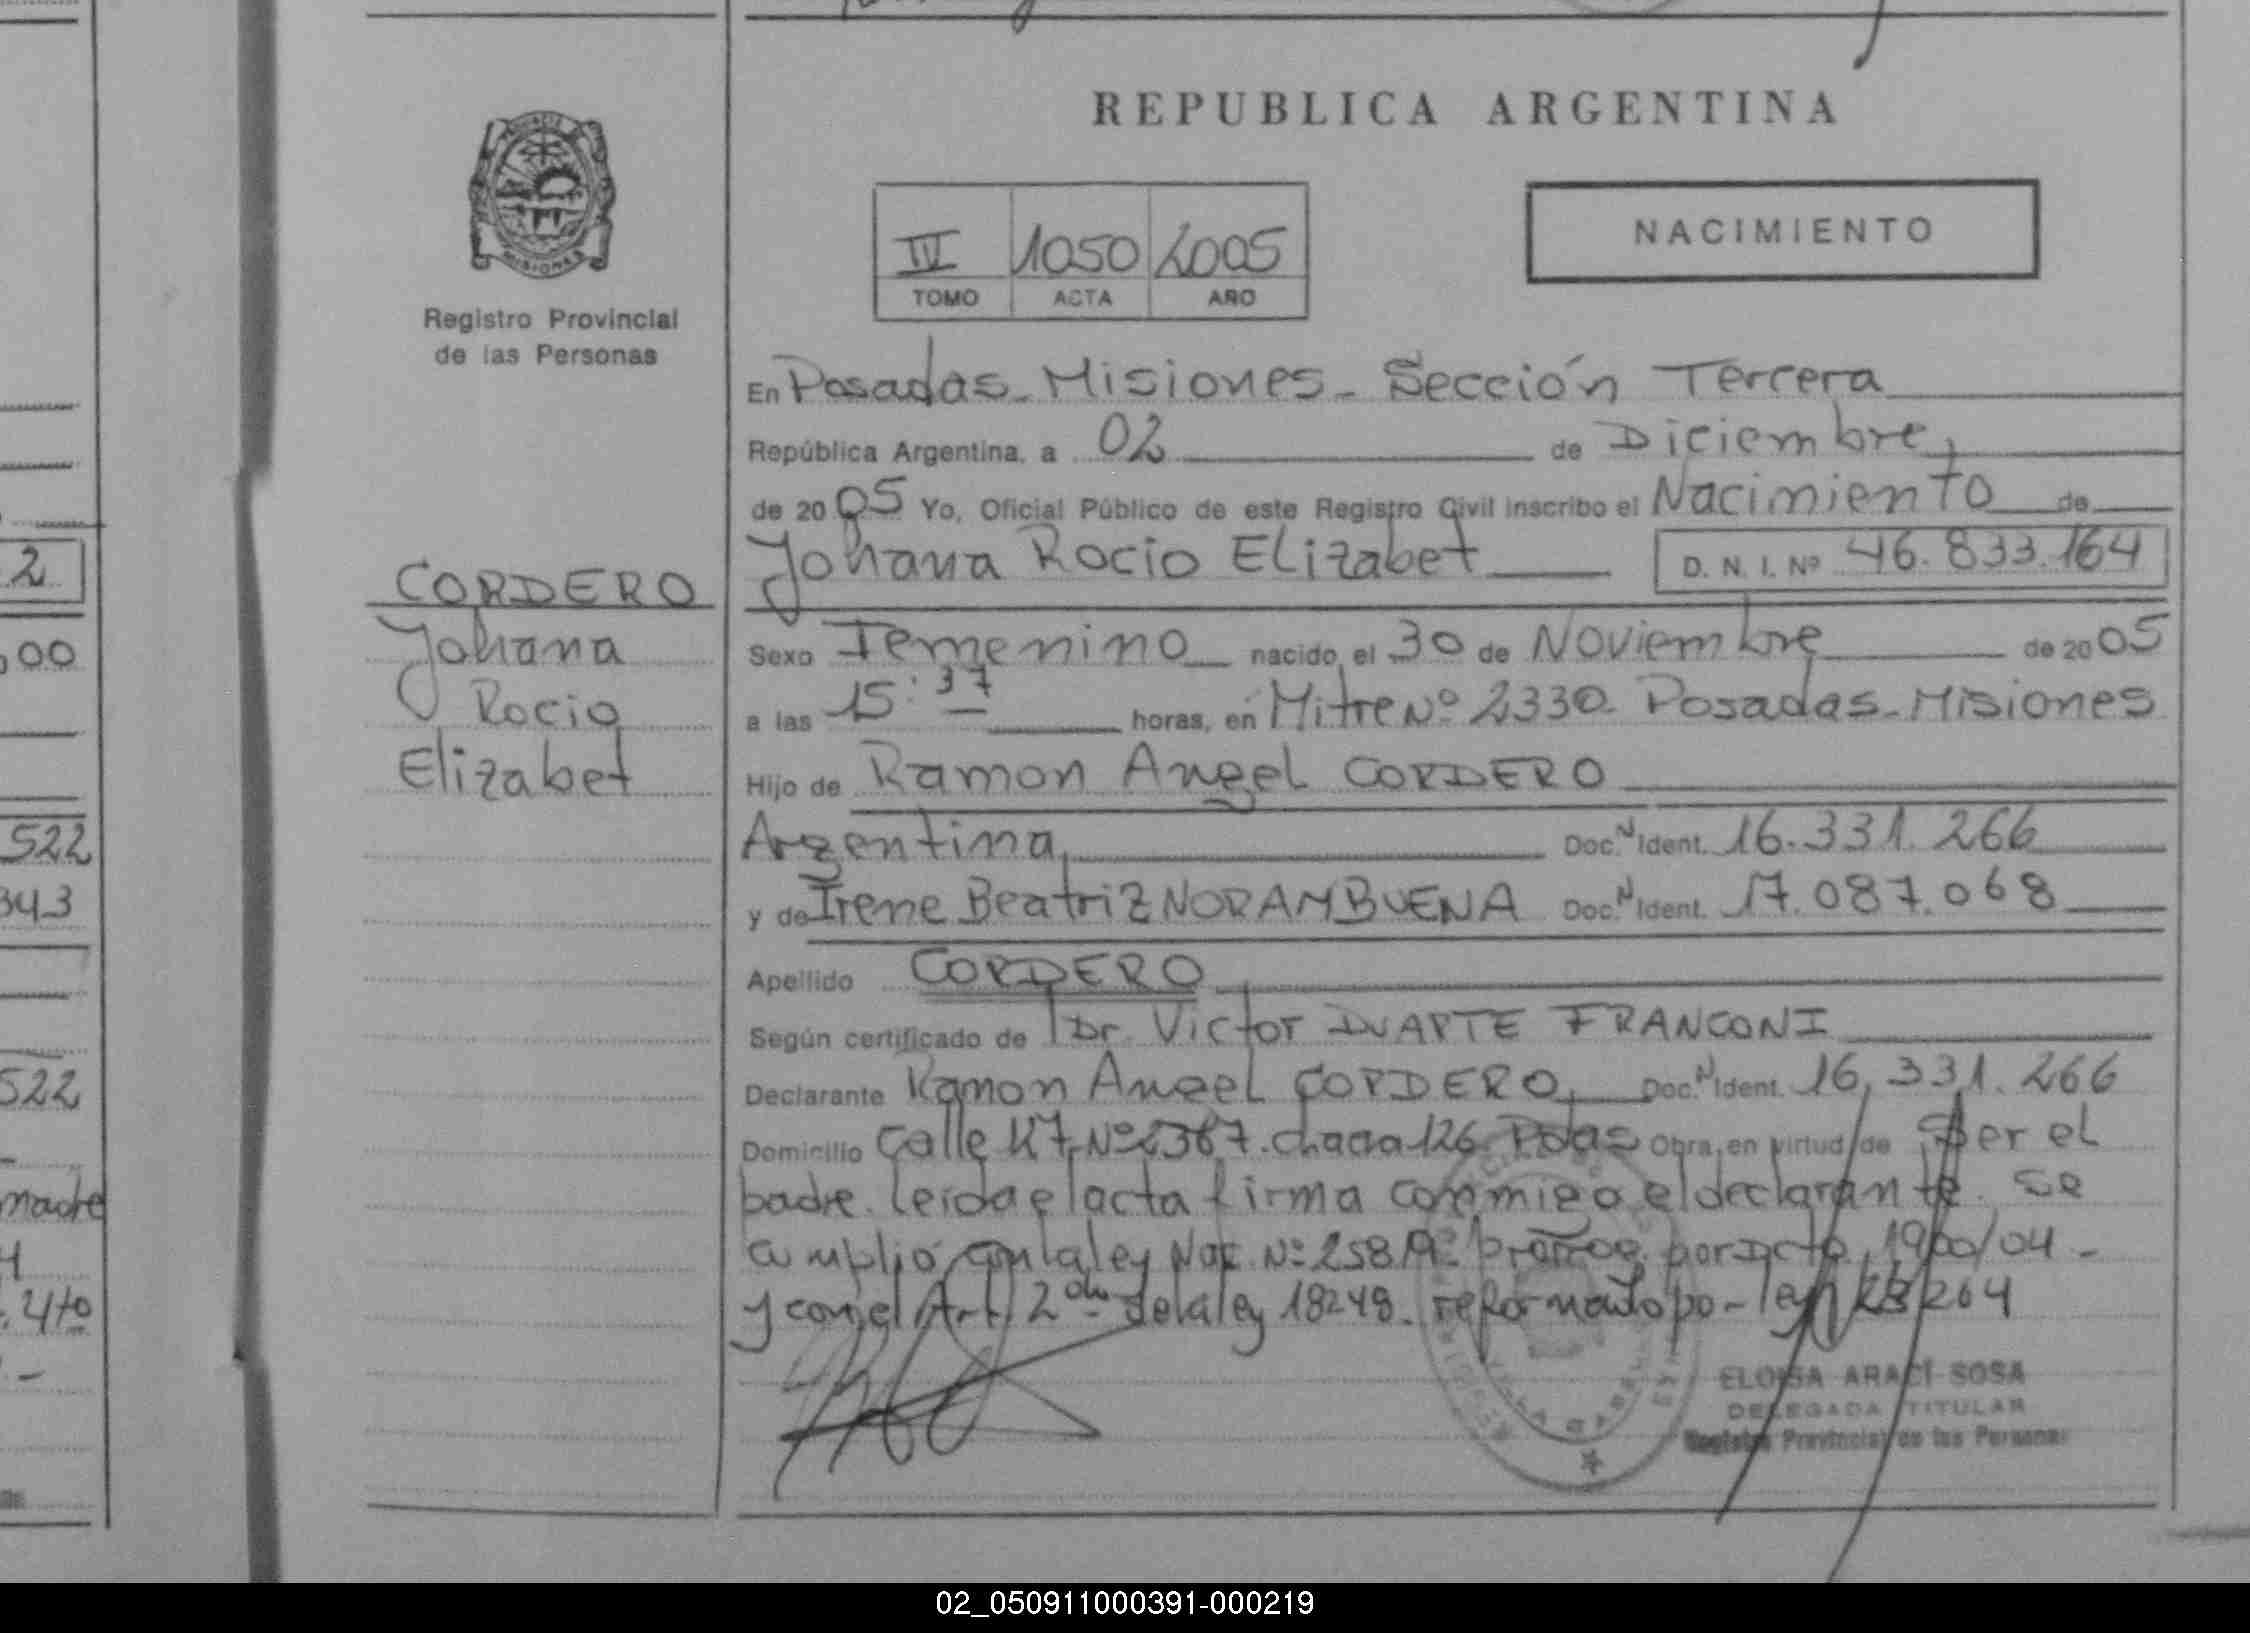 REPUBLICA ARGENTINA
MISIONES
Registro Provincial
de las Personas
IV 1050 2005
TOMO ACTA AÑO
NACIMIENTO
En Posadas - Misiones - Sección Tercera
República Argentina, a 02 de Diciembre,
de 2005 Yo, Oficial Público de este Registro Civil inscribo el Nacimiento de
Johana Rocio Elizabet D. N. I. Nº 46.833.164
CORDERO
Johana
Rocio
Elizabet
Sexo Femenino nacido el 30 de Noviembre de 2005
a las 15:37 horas, en Mitre Nº 2330 - Posadas - Misiones
Hijo de Ramon Angel CORDERO
Argentina, Doc. N Ident. 16.331.266
y de Irene Beatriz NORAMBUENA Doc. N Ident. 17.087.068
Apellido CORDERO
Según certificado de Dr. Victor DUARTE FRANCONI
Declarante Ramon Angel CORDERO, Doc. N Ident. 16.331.266
Domicilio Calle 127 Nº 2367. chacra 126. Pdas Obra en virtud de Ser el
padre. leida el acta firma conmigo el declarante. Se
cumplió con la ley Nac. Nº por Dcto 1900/04 -
y con el Art. 2 de la ley 18248. reformado por ley 23264
ELOISA ARACÍ SOSA
DELEGADA TITULAR
Registro Provincial de las Personas
2
,00
522
343
522
madre
4
4to
02_050911000391-000219